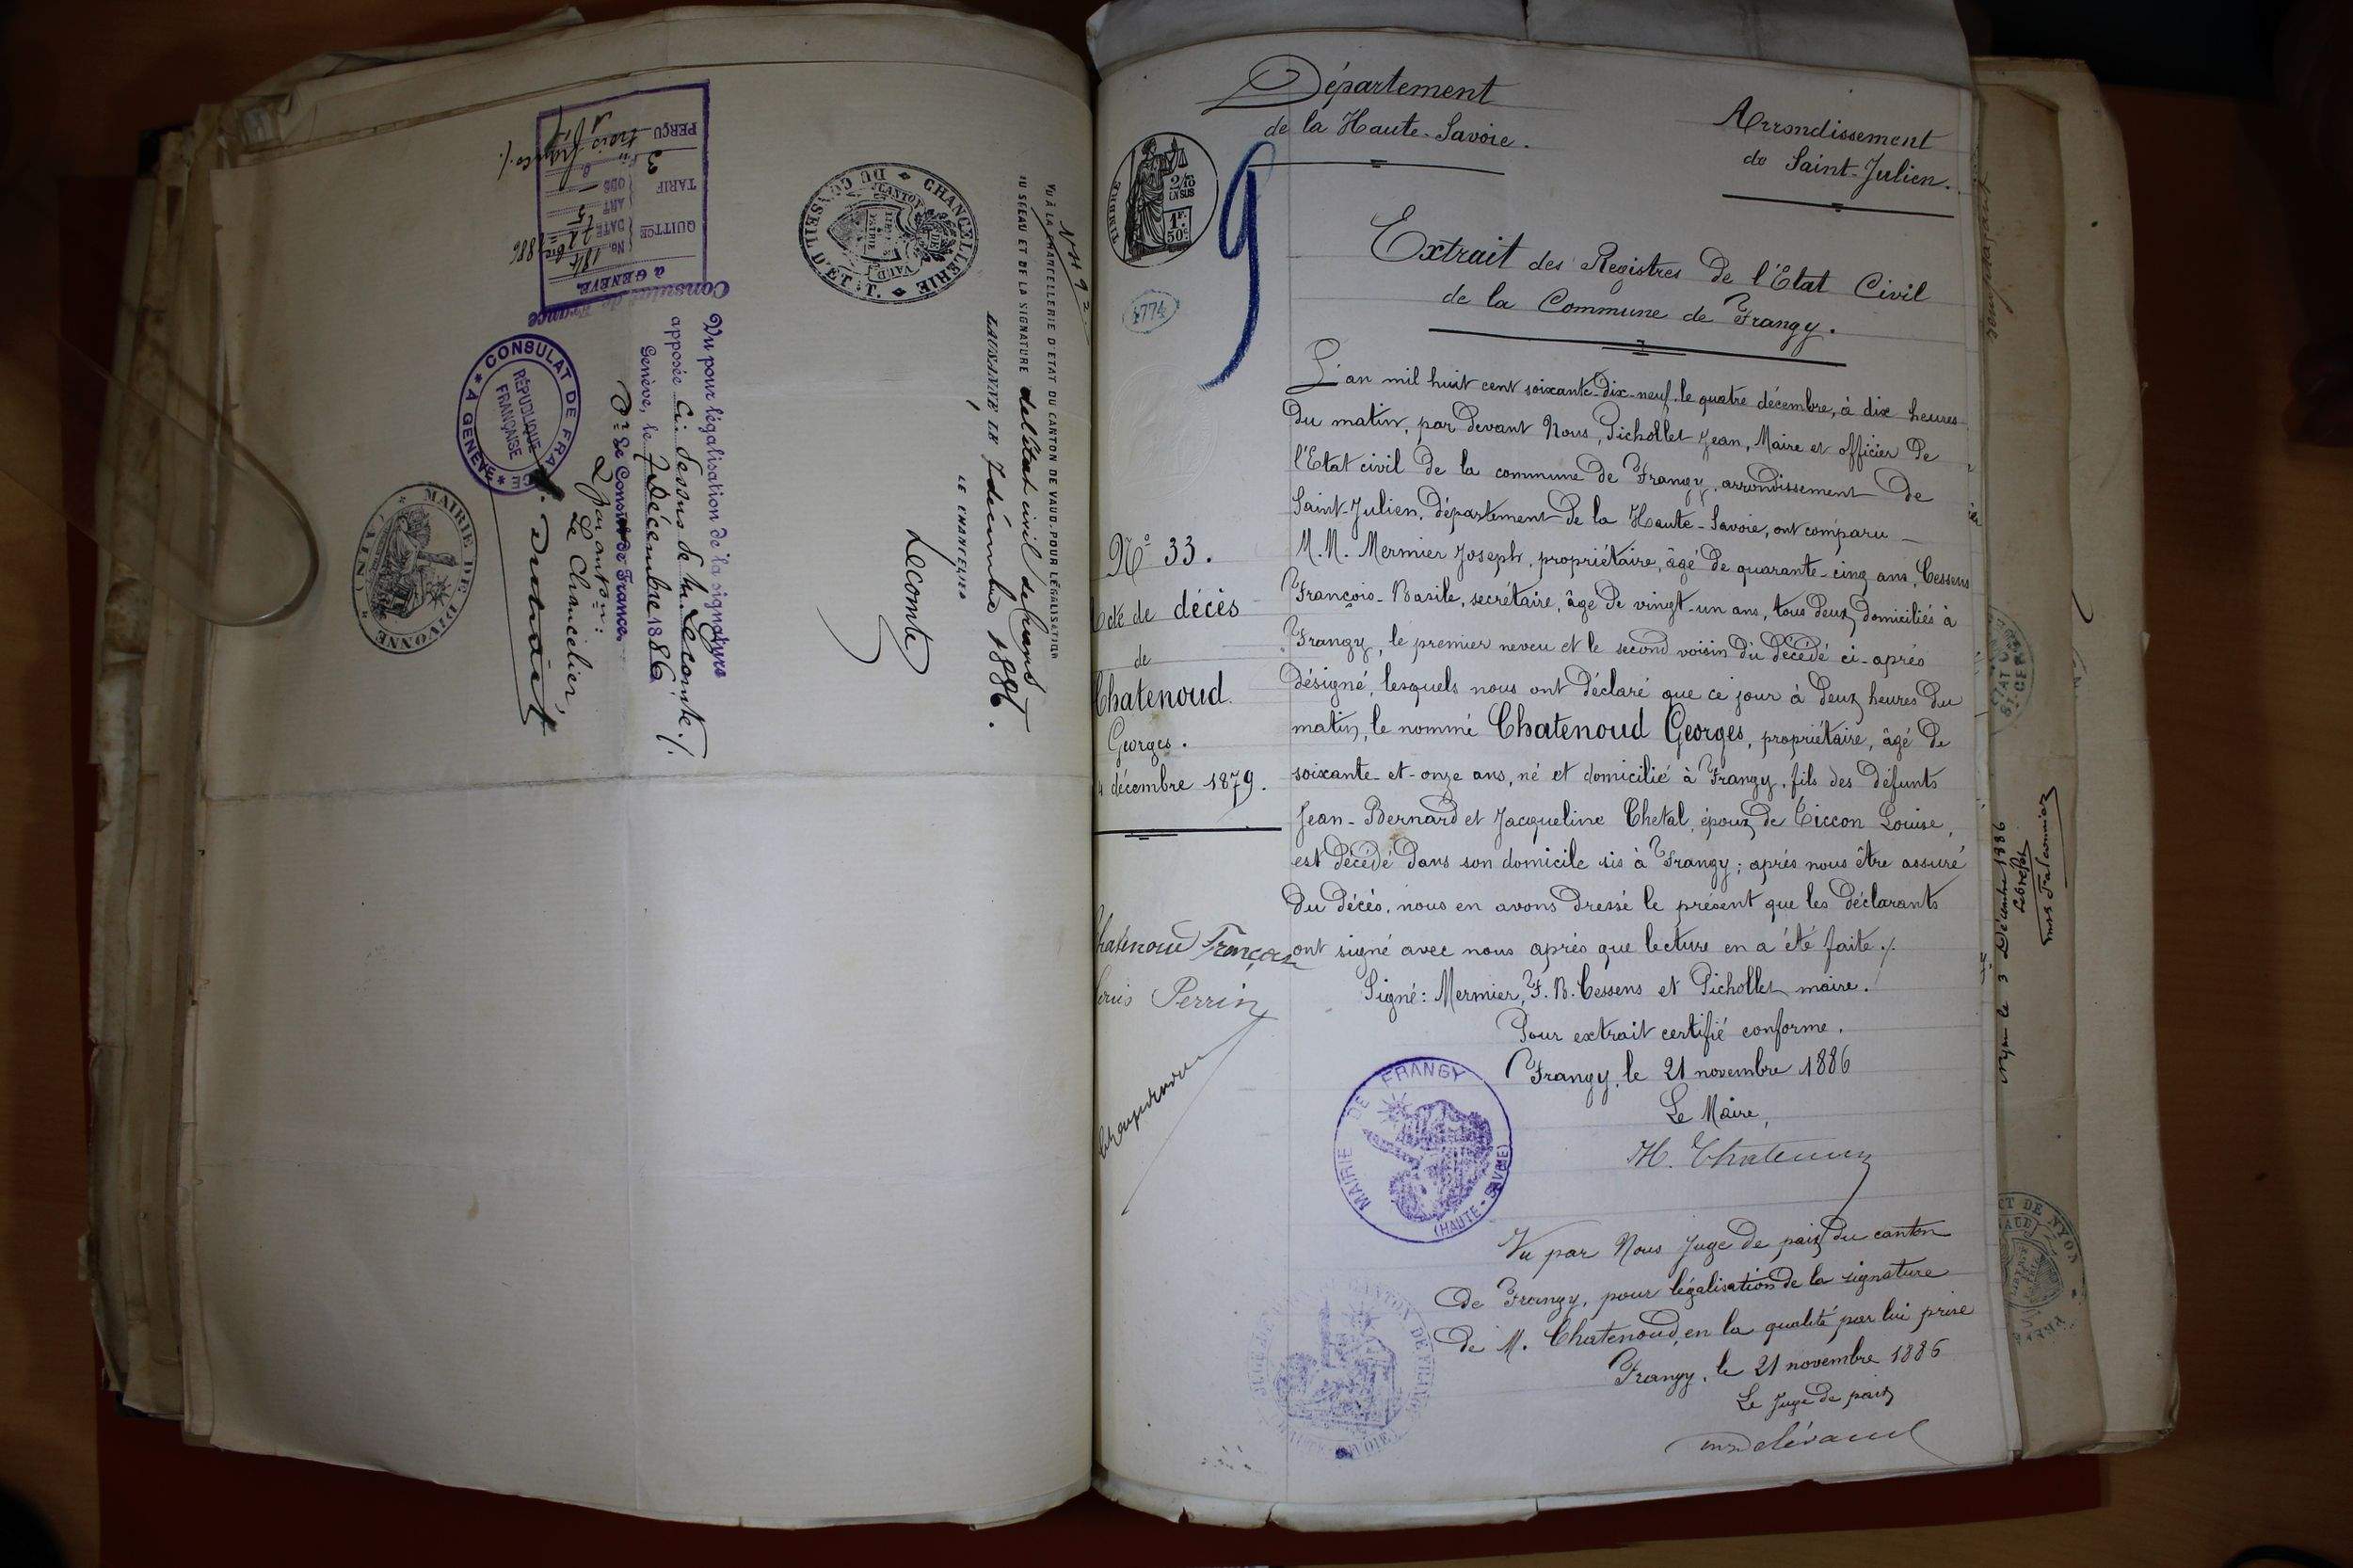 Département
de la Haute-Savoie.
Arrondissement
de Saint-Julien.
TIMBRE
2/10
EN SUS
1F.
50c
9
1774
Extrait des Registres de l'Etat Civil
de la Commune de Frangy.
L'an mil huit cent soixante-dix-neuf le quatre décembre, à dix heures
du matin, par devant Nous, Pichollet Jean, Maire et officier de
l'Etat civil de la commune de Frangy, arrondissement de
Saint-Julien, département de la Haute-Savoie, ont comparu
M.M. Mermier Joseph, propriétaire, âgé de quarante-cinq ans, Cessens
François-Basile, secrétaire, âgé de vingt-un ans, tous deux domiciliés à
Frangy, le premier neveu et le second voisin du décédé ci-après
désigné, lesquels nous ont déclaré que ce jour à deux heures du
matin, le nommé Chatenoud Georges, propriétaire, âgé de
soixante-et-onze ans, né et domicilié à Frangy, fils des défunts
Jean-Bernard et Jacqueline Chetal, époux de Ticcon Louise,
est décédé dans son domicile sis à Frangy; après nous être assuré
du décès, nous en avons dressé le présent que les déclarants
ont signé avec nous après que lecture en a été faite./.
Signé: Mermier, F. B. Cessens et Pichollet maire.
Pour extrait certifié conforme.
Frangy, le 21 novembre 1886
Le Maire,
H. Chatenoud
MAIRIE DE FRANGY
(HAUTE-SAVOIE)
Vu par Nous Juge de paix du canton
de Frangy, pour légalisation de la signature
de M. Chatenoud, en la qualité par lui prise
Frangy, le 21 novembre 1886
Le Juge de paix
No 33.
Acte de décès
de
Chatenoud
Georges.
4 décembre 1879.
Chatenoud François
Louis Perrin
VU À LA CHANCELLERIE D'ETAT DU CANTON DE VAUD. POUR LÉGALISATION
DU SCEAU ET DE LA SIGNATURE de l'état civil de Crans
LAUSANNE LE 7 décembre 1886.
LE CHANCELIER
Lecomte
CHANCELLERIE DU CONSEIL D'ÉTAT.
CANTON DE VAUD
LIBERTÉ ET PATRIE
Vu pour légalisation de la signature
apposée ci-dessus de M. Lecomte./.
Genève, le 7 Décembre 1886
Pr le Consul de France,
& par autson:
Le Chancelier,
CONSULAT DE FRANCE * A GENÈVE *
RÉPUBLIQUE
FRANÇAISE
MAIRIE DE DIVONNE * (AIN) *
Consulat de France
à GENÈVE
QUITTCE
No 184
DATE 7 Xbre 1886
TARIF
ART 75
OBS
PERÇU trois francs /.
Nyon le 3 Décembre 1886